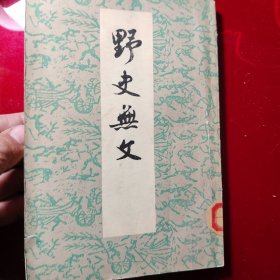 野史無文